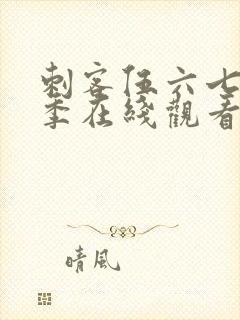 刺客伍六七
季在綫觀看
晴風